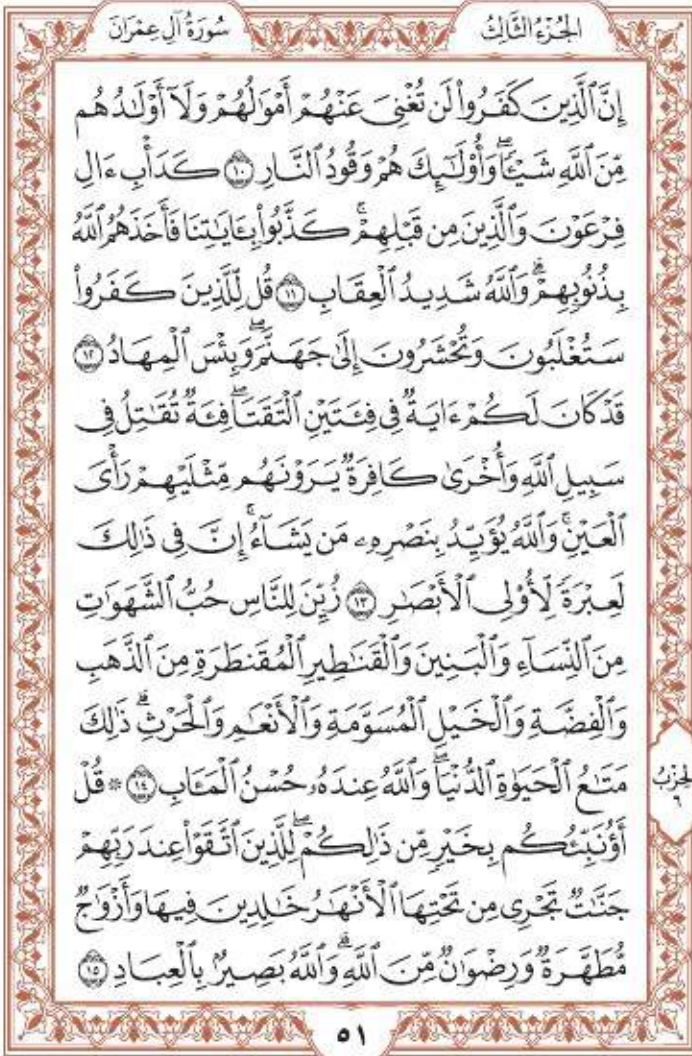 الجُزْءُ الثَّالِثُ
سُورَةُ آلِ عِمْرَانَ
إِنَّ ٱلَّذِينَ كَفَرُوا۟ لَن تُغْنِىَ عَنْهُمْ أَمْوَٰلُهُمْ وَلَآ أَوْلَـٰدُهُم
مِّنَ ٱللَّهِ شَيْـًٔاۖ وَأُو۟لَـٰٓئِكَ هُمْ وَقُودُ ٱلنَّارِ ١٠ كَدَأْبِ ءَالِ
فِرْعَوْنَ وَٱلَّذِينَ مِن قَبْلِهِمْۚ كَذَّبُوا۟ بِـَٔايَـٰتِنَا فَأَخَذَهُمُ ٱللَّهُ
بِذُنُوبِهِمْۗ وَٱللَّهُ شَدِيدُ ٱلْعِقَابِ ١١ قُل لِّلَّذِينَ كَفَرُوا۟
سَتُغْلَبُونَ وَتُحْشَرُونَ إِلَىٰ جَهَنَّمَۖ وَبِئْسَ ٱلْمِهَادُ ١٢
قَدْ كَانَ لَكُمْ ءَايَةٌ فِى فِئَتَيْنِ ٱلْتَقَتَاۖ فِئَةٌ تُقَـٰتِلُ فِى
سَبِيلِ ٱللَّهِ وَأُخْرَىٰ كَافِرَةٌ يَرَوْنَهُم مِّثْلَيْهِمْ رَأْىَ
ٱلْعَيْنِۚ وَٱللَّهُ يُؤَيِّدُ بِنَصْرِهِۦ مَن يَشَآءُۚ إِنَّ فِى ذَٰلِكَ
لَعِبْرَةً لِّأُو۟لِى ٱلْأَبْصَـٰرِ ١٣ زُيِّنَ لِلنَّاسِ حُبُّ ٱلشَّهَوَٰتِ
مِنَ ٱلنِّسَآءِ وَٱلْبَنِينَ وَٱلْقَنَـٰطِيرِ ٱلْمُقَنطَرَةِ مِنَ ٱلذَّهَبِ
وَٱلْفِضَّةِ وَٱلْخَيْلِ ٱلْمُسَوَّمَةِ وَٱلْأَنْعَـٰمِ وَٱلْحَرْثِۗ ذَٰلِكَ
مَتَـٰعُ ٱلْحَيَوٰةِ ٱلدُّنْيَاۖ وَٱللَّهُ عِندَهُۥ حُسْنُ ٱلْمَـَٔابِ ١٤ ۞ قُلْ
أَؤُنَبِّئُكُم بِخَيْرٍ مِّن ذَٰلِكُمْۖ لِلَّذِينَ ٱتَّقَوْا۟ عِندَ رَبِّهِمْ
جَنَّـٰتٌ تَجْرِى مِن تَحْتِهَا ٱلْأَنْهَـٰرُ خَـٰلِدِينَ فِيهَا وَأَزْوَٰجٌ
مُّطَهَّرَةٌ وَرِضْوَٰنٌ مِّنَ ٱللَّهِۗ وَٱللَّهُ بَصِيرٌۢ بِٱلْعِبَادِ ١٥
الحِزْبُ
٦
٥١